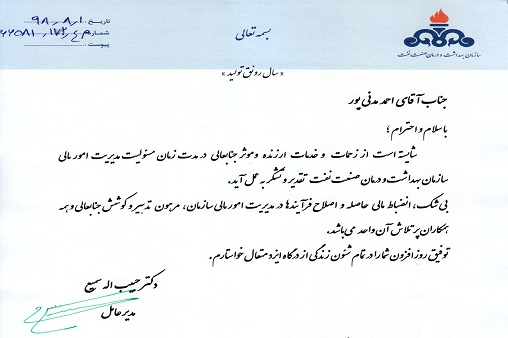 بسمه تعالی
تاریخ: ۹۸،۸،۱
شماره:
پیوست:
سازمان بهداشت و درمان صنعت نفت
«سال رونق تولید»
جناب آقای احمد مدنی پور
با سلام و احترام؛
شایسته است از زحمات و خدمات ارزنده و موثر جنابعالی در مدت زمان مسئولیت مدیریت امور مالی
سازمان بهداشت و درمان صنعت نفت تقدیر و تشکر به عمل آید.
بی شک، انضباط مالی حاصله و اصلاح فرآیندها در مدیریت امور مالی سازمان، مرهون تدبیر و کوشش جنابعالی و همه
همکاران پر تلاش آن واحد می باشد.
توفیق روز افزون شما را در تمام شئون زندگی از درگاه ایزد متعال خواستارم.
دکتر حبیب اله سمیع
مدیر عامل